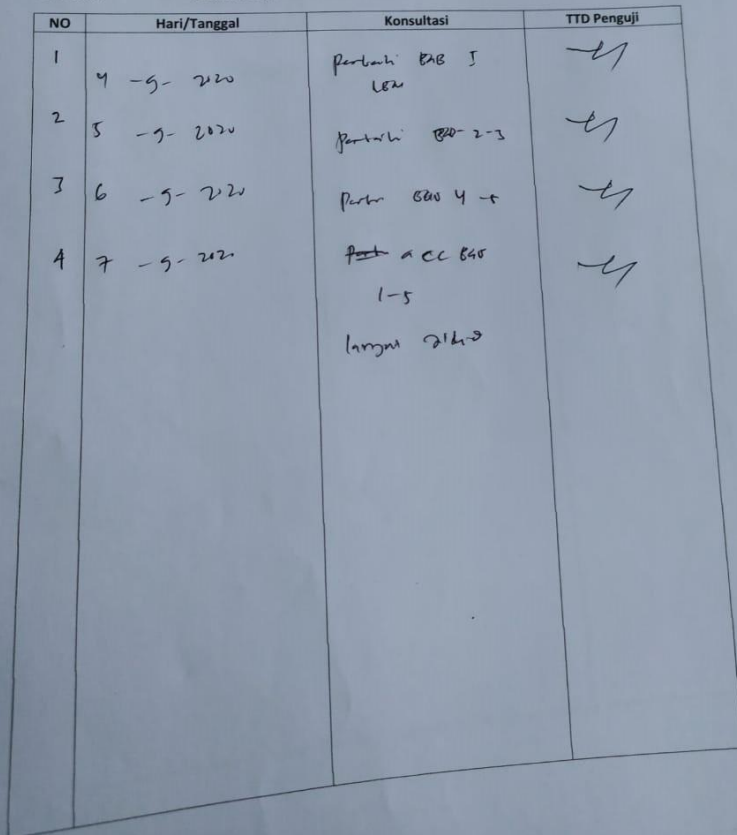 NO Hari/Tanggal Konsultasi TTD Penguji
1 4 -9- 2020 perbaiki BAB I
2 5 -9- 2020 perbaiki BAB 2-3
3 6 -9- 2020 BAB 4
4 7 -9- 2020 acc BAB
1-5